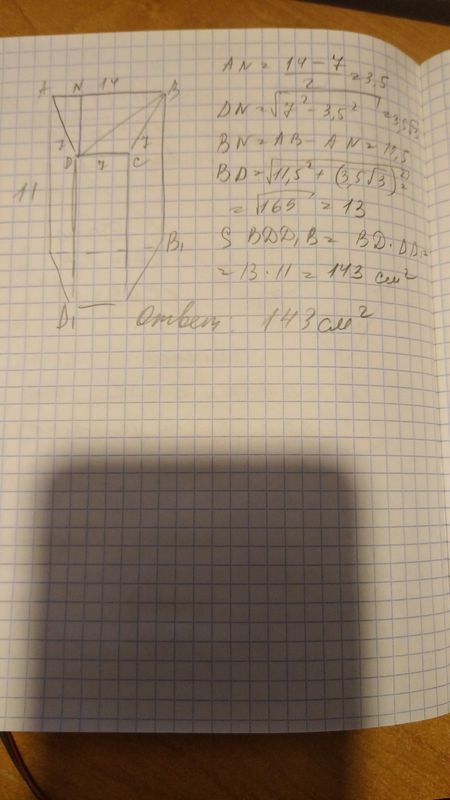 A N 14 B
7 D 7 C 7
11
B₁
D₁
AN = (14 - 7)/2 = 3,5
DN = √(7² - 3,5²) = 3,5√3
BN = AB - AN = 11,5
BD = √(11,5² + (3,5√3)²) =
= √169 = 13
S BDD₁B = BD · DD₁ =
= 13 · 11 = 143 см²
Ответ 143 см²